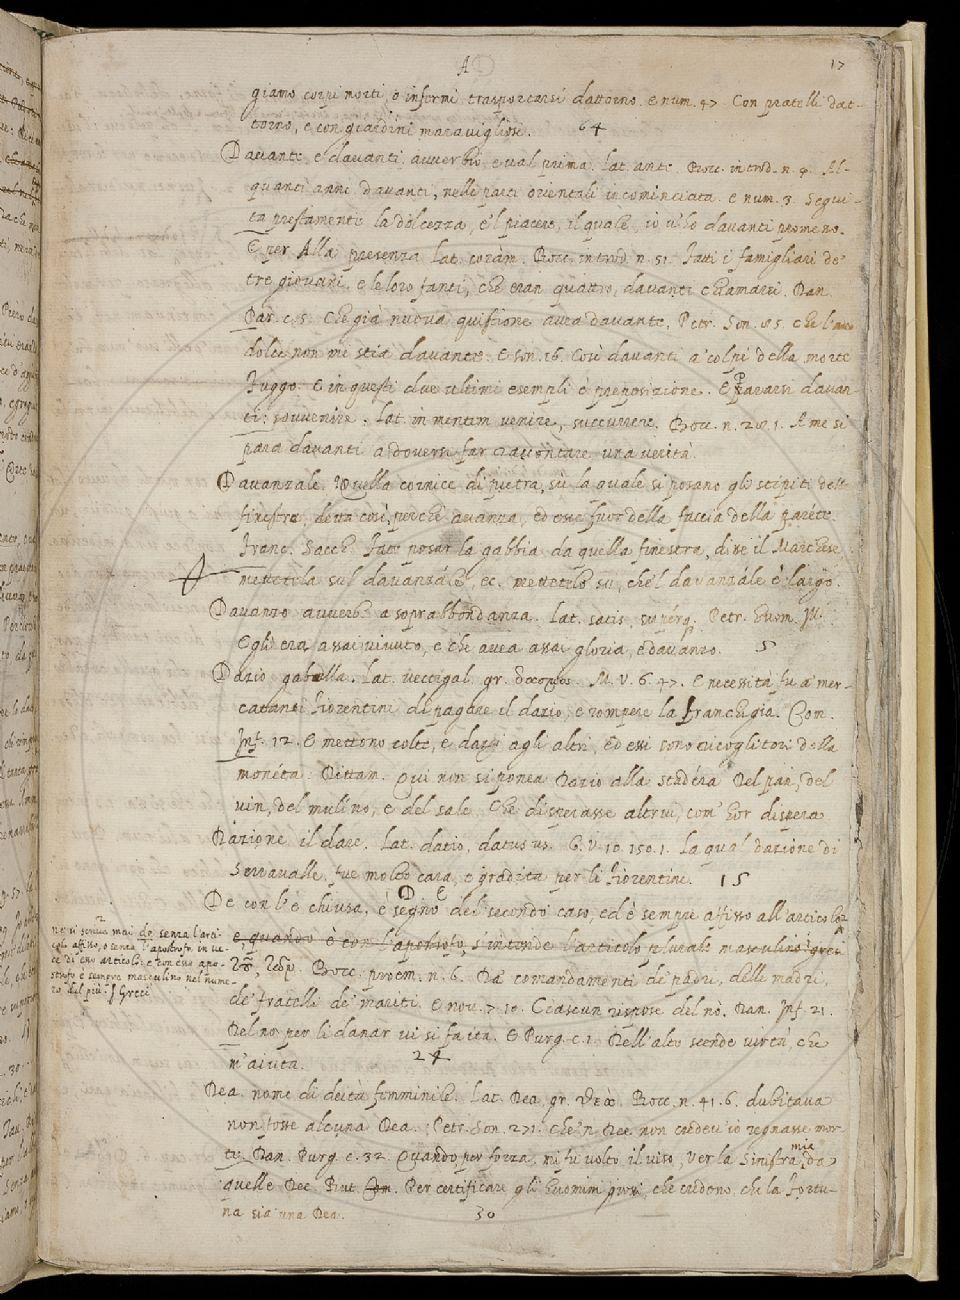 A D
17
giamo corpi morti, o informi trasportarsi dattorno. E num. 47. Con pratelli dat-
torno, e con giardini maravigliosi. 64
Davante e davanti avverbio, e val prima. lat. ante. Bocc. introd. n. 4. Al-
quanti anni davanti, nelle parti orientali incominciata. e num. 3. Segui-
ta prestamente la dolcezza, e 'l piacere, il quale, io v'ho davanti promeso.
E per Alla presenza lat. coram. Bocc. introd. n. 51. Fatti i famigliari de'
tre giovani, e le loro fanti, che eran quattro, davanti chiamarsi. Dan.
Par. c. 5. Che già nuova quistione avea davante. Petr. Son. 85. che l'arco
dolce non mi stia davante. E son. 16. Così davanti a' colpi della morte
Fuggo. E in questi due ultimi esempli è preposizione. E Pararsi davan-
ti: sovvenire. Lat. in mentem venire, succurrere. Bocc. n. 28. 1. A me si
para davanti a doversi far raccontare una verità.
Davanzale. Quella cornice di pietra, sù la quale si posano gli stipiti delle
finestre, detta così, perchè avanza, ed esce fuor della faccia della parete.
Franc. Sacch. Fate posar la gabbia da quella finestra, disse il Marchese,
mettetela sul davanzale, ec. mettetelo su, che 'l davanzale è largo.
Davanzo avverb. a soprabbondanza. Lat. satis, superq. Petr. Huom. Ill.
Egli era assai vivuto, e che avea assai gloria, e davanzo. 5
Dazio gabella. Lat. vectigal. gr. M. V. 6. 47. E necessità fu a' mer-
catanti fiorentini di pagare il dazio, e rompere la franchigia. Com.
Inf. 12. E mettono colte, e dazzi agli altri, ed essi sono ricoglitori della
moneta. Dittam. Qui non si ponea Dazio alla stadera Del pan, del
vin, del mulino, e del sale Che disperasse altrui, com' hor dispera
Dazione il dare. Lat. datio, datus us. G. V. 10. 150. 1. La qual dazione di
Serravalle, fue molto cara, e gradita per li fiorentini. 15
D E
De con l'e chiusa, è segno del secondo caso, ed è sempre affisso all'articolo
e quando è con l'apostrofo, s'intende l'articolo plurale masculino. greci
Bocc. proem. n. 6. Da' comandamenti de' padri, delle madri,
de' fratelli de' mariti. E nov. 7. 10. Ciascun rispose del nò. Dan. Inf. 21.
Del no per li danar vi si fa ita. E Purg. c. 1. Dell'alto scende virtù, che
m'aiuta. 24
ne si scriva mai de senza l'arti-
colo affisso, o senza l'apostrofo in ve-
ce di esso articolo: e con esso apo-
strofo è sempre masculino nel nume-
ro del più. I Greci
Dea. nome di deità femminile. Lat. Dea, gr. θεά. Bocc. n. 41. 6. dubitava
non fosse alcuna Dea. Petr. Son. 271. Che 'n Dee non credev' io regnasse mor-
te. Dan. Purg. c. 32. Quando per forza, mi fu volto il viso, Ver la sinistra mia, da
quelle Dee. Com. Per certificare gli Huomini grossi, che credono, che la fortu-
na sia una Dea. 30